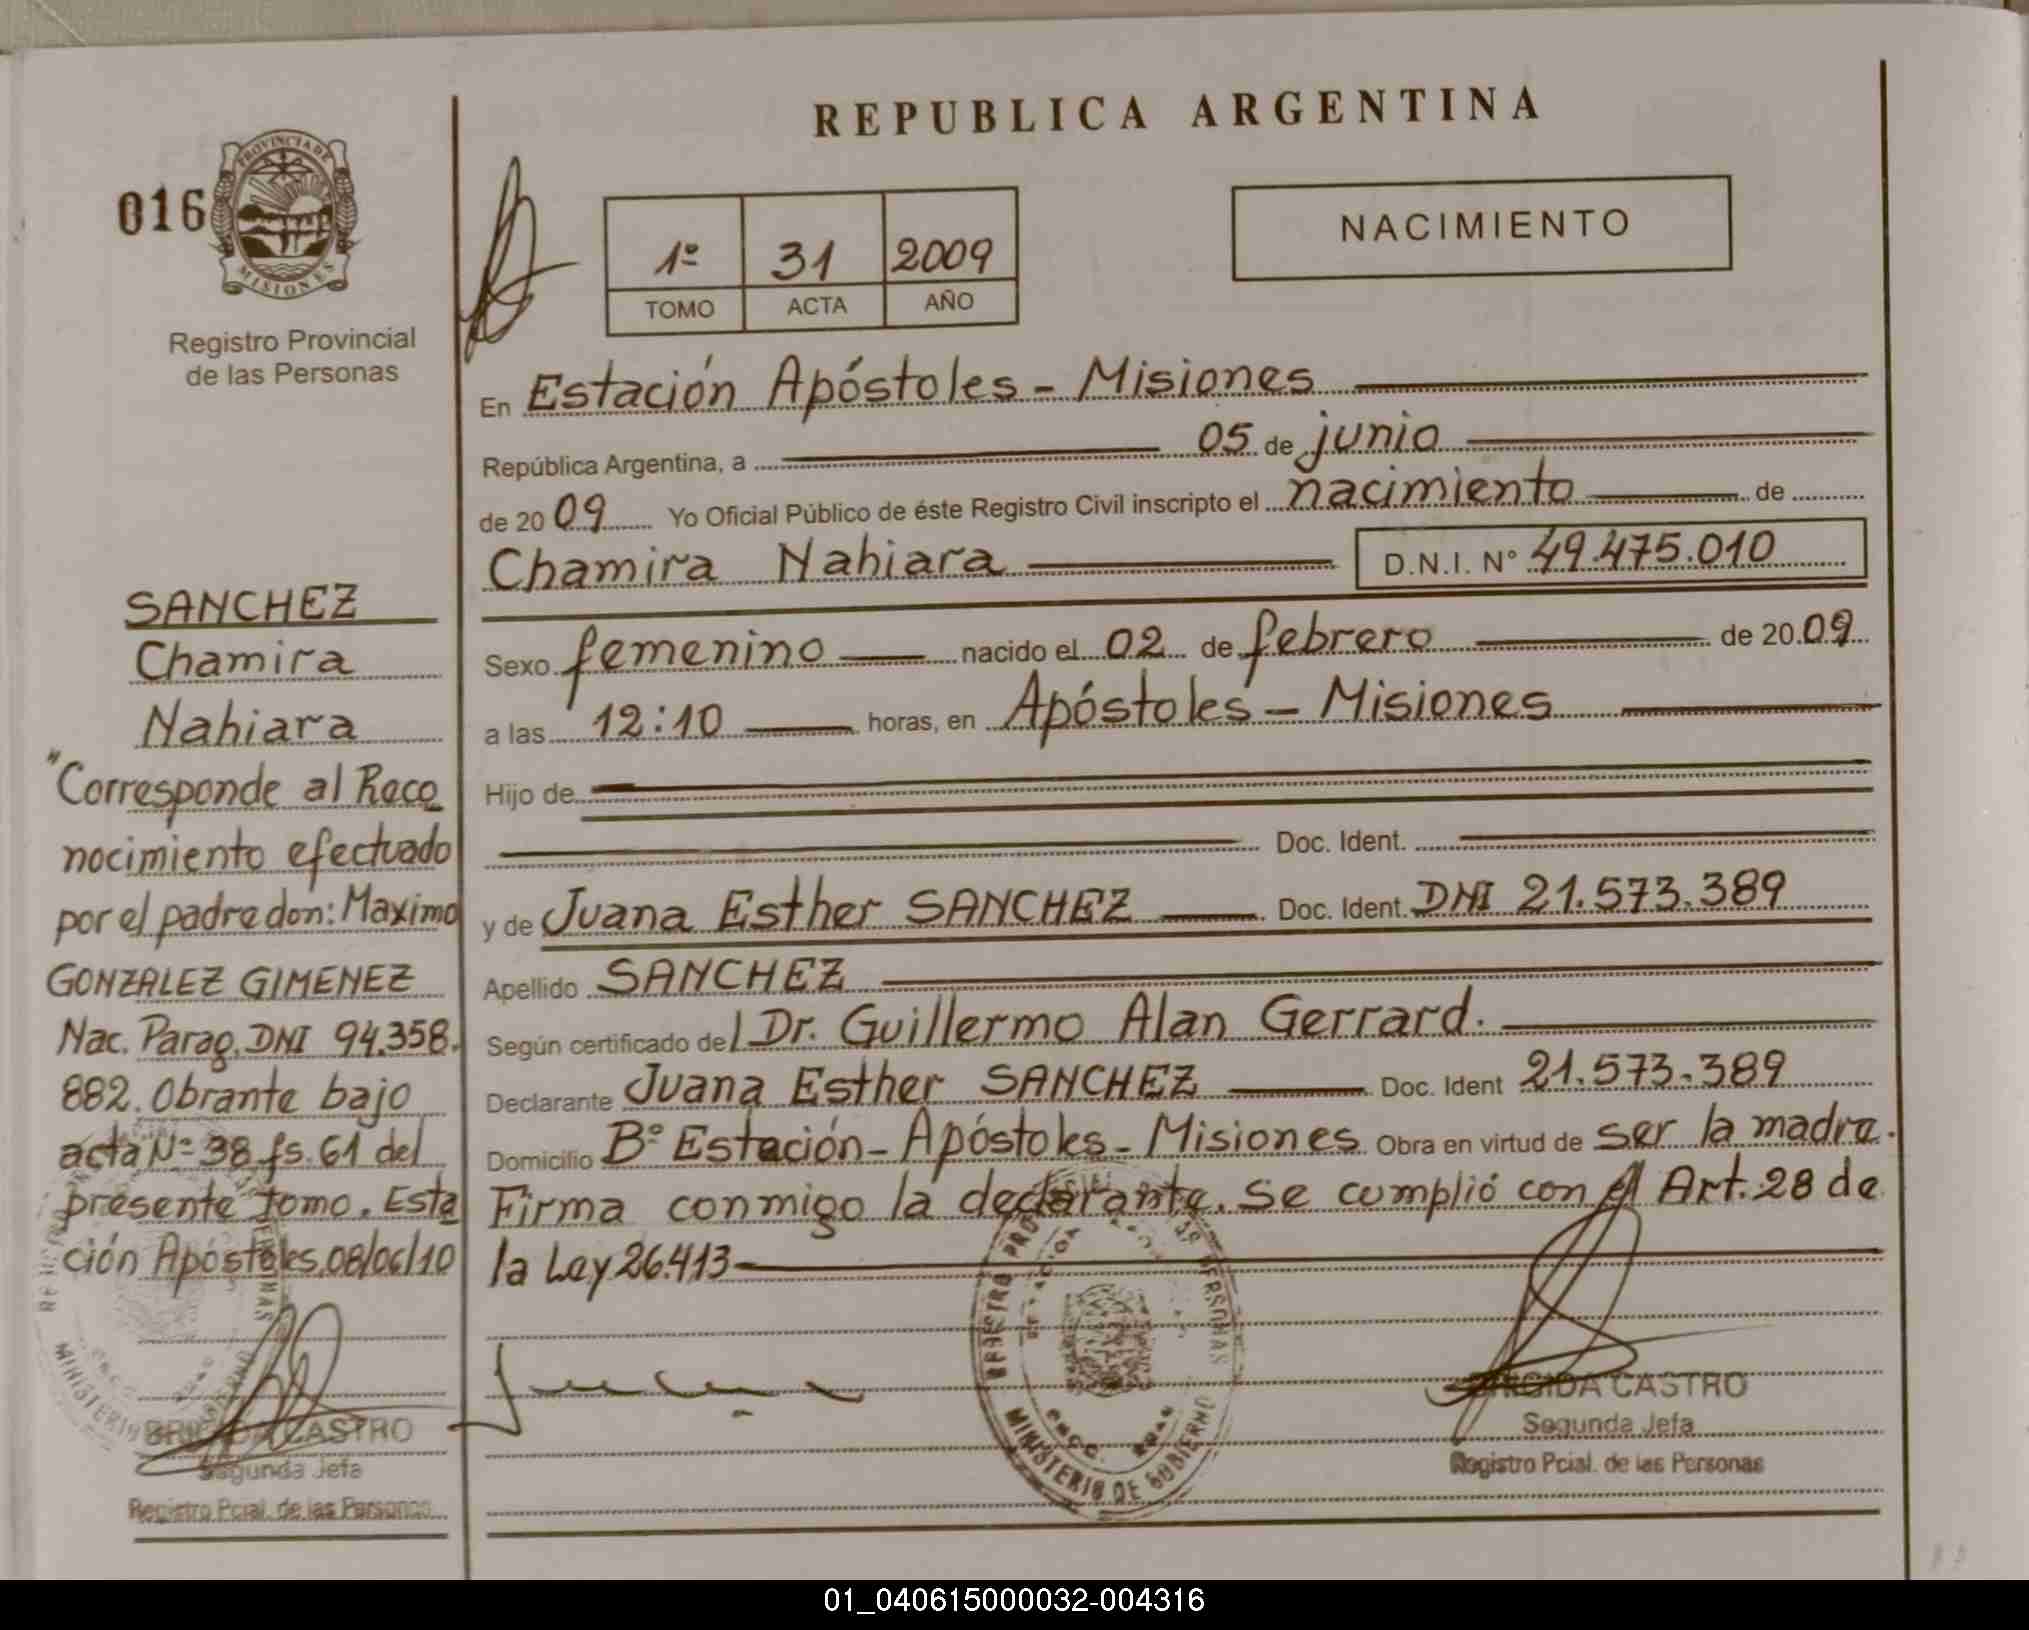 REPUBLICA ARGENTINA
016
PROVINCIA DE
MISIONES
Registro Provincial
de las Personas
1º 31 2009
TOMO ACTA AÑO
NACIMIENTO
En Estación Apóstoles - Misiones
República Argentina, a 05 de junio
de 2009 Yo Oficial Público de éste Registro Civil inscripto el nacimiento de
Chamira Nahiara D.N.I. Nº 49.475.010
Sexo femenino nacido el 02 de febrero de 2009
a las 12:10 horas, en Apóstoles - Misiones
Hijo de
Doc. Ident.
y de Juana Esther SANCHEZ Doc. Ident. DNI 21.573.389
Apellido SANCHEZ
Según certificado del Dr. Guillermo Alan Gerrard.
Declarante Juana Esther SANCHEZ Doc. Ident 21.573.389
Domicilio Bº Estación - Apóstoles - Misiones Obra en virtud de ser la madre.
Firma conmigo la declarante. Se cumplió con el Art. 28 de
la Ley 26.413
SANCHEZ
Chamira
Nahiara
"Corresponde al Reco
nocimiento efectuado
por el padre don: Maximo
GONZALEZ GIMENEZ
Nac. Parag. DNI 94.358.
882. Obrante bajo
acta Nº 38 fs. 61 del
presente Tomo. Esta
ción Apóstoles, 08/06/10
BRIGIDA CASTRO
Segunda Jefa
Registro Pcial. de las Personas
MINISTERIO DE GOBIERNO
BRIGIDA CASTRO
Segunda Jefa
Registro Pcial. de las Personas
01_040615000032-004316